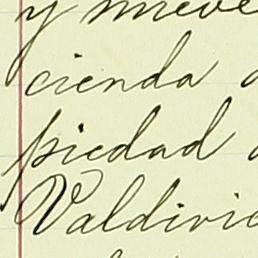 y nueve
cienda
piedad
Valdivie